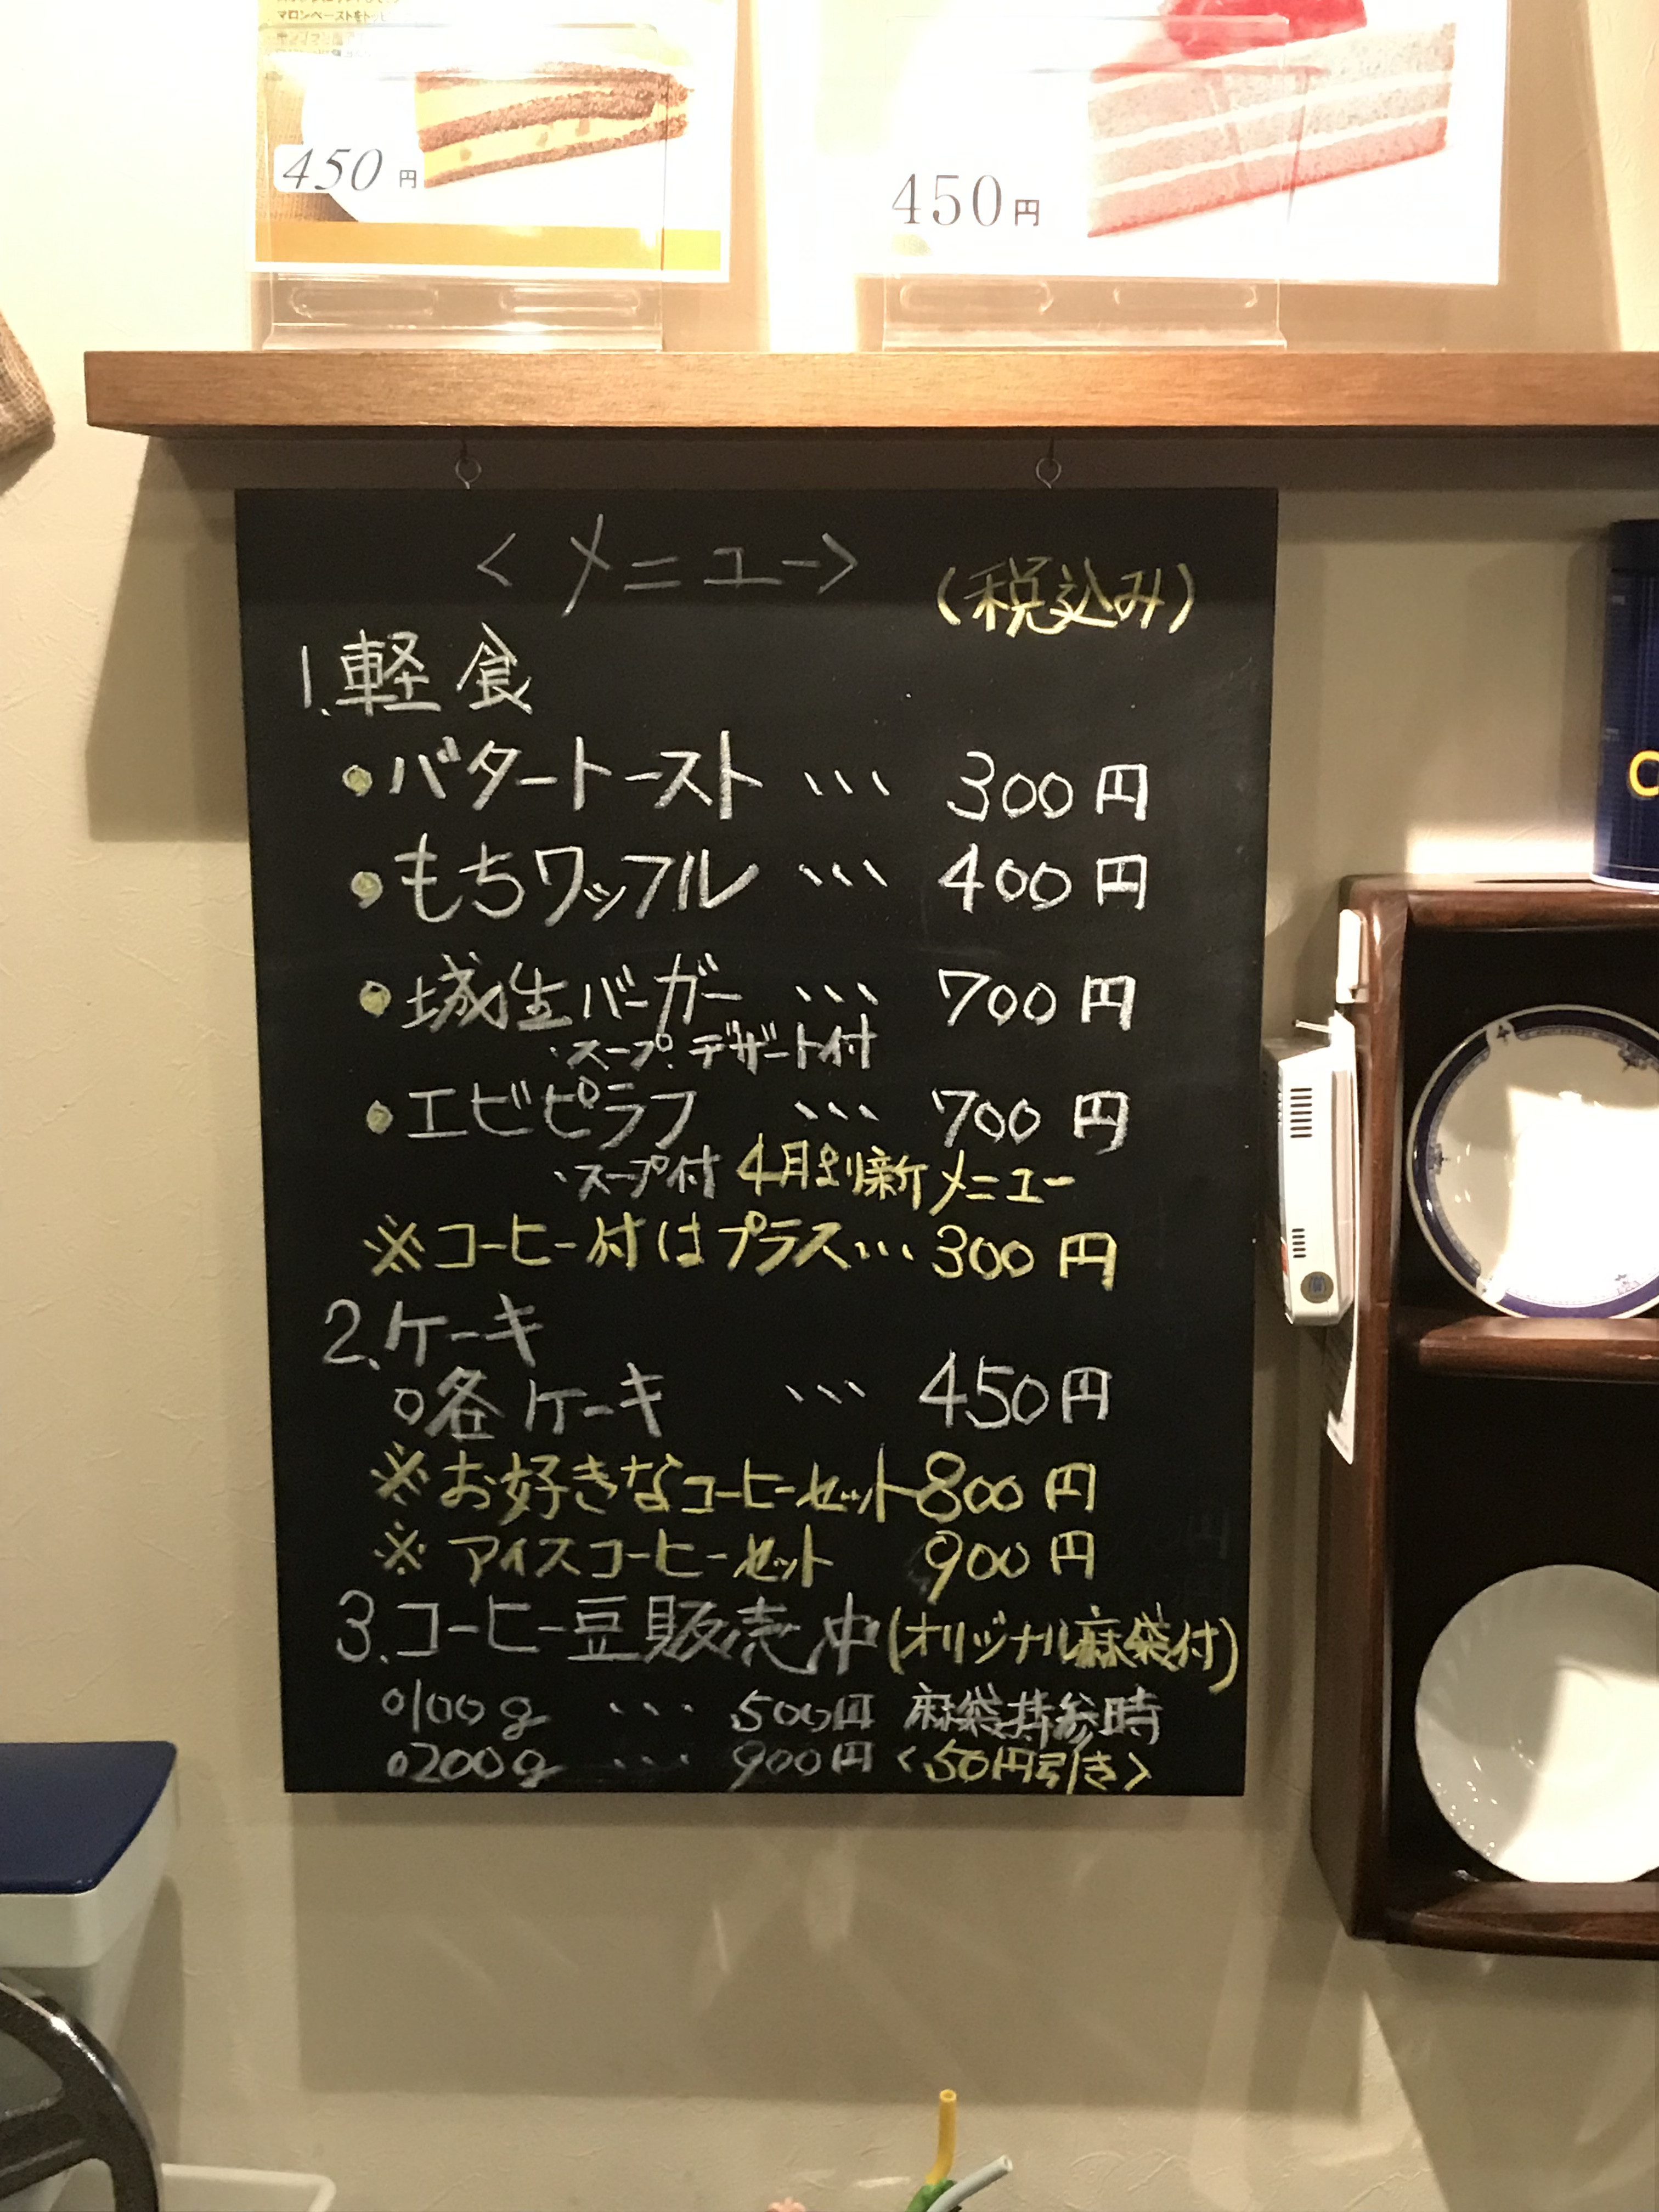 マロンペーストをトッ
450円
450円
<メニュー>
(税込み)
1.軽食
●バタートースト 、、、 300円
●もちワッフル 、、、 400円
●城生バーガー 、、、 700円
・スープ.デザート付
●エビピラフ 、、、 700円
・スープ付 4月より新メニュー
※コーヒー付はプラス、、、300円
2.ケーキ
○各ケーキ 、、、 450円
※お好きなコーヒーセット800円
※アイスコーヒーセット 900円
3.コーヒー豆販売中(オリジナル麻袋付)
○100g 、、、 500円 麻袋持参時
○200g 、、、 900円 <50円引き>